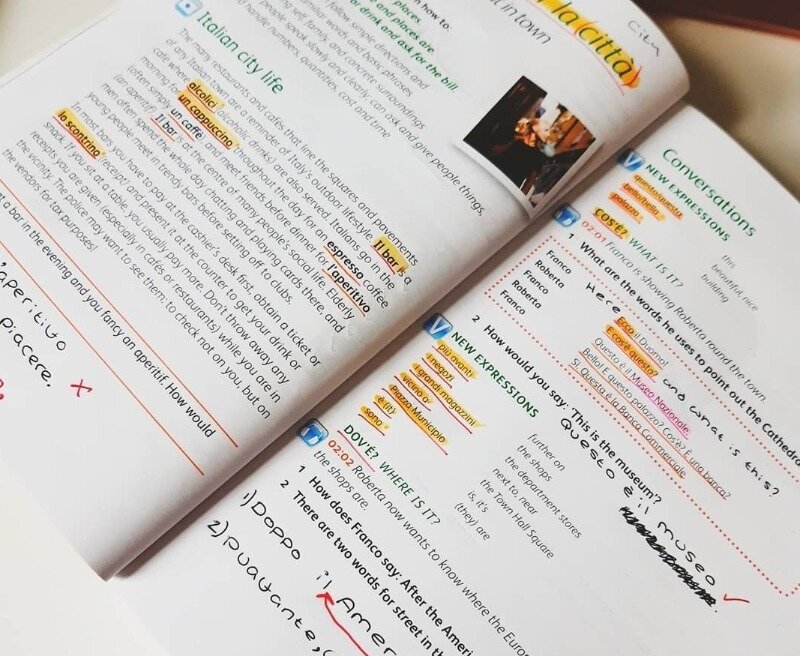 la città
City
out in town
how to:
places.
and places are
or drink and ask for the bill
follow simple directions and
familiar words and basic phrases
self, family, and concrete surroundings
people speak slowly and clearly, can ask and give people things,
handle numbers, quantities, cost and time
Italian city life
The many restaurants and cafés that line the squares and pavements
of any Italian town are a reminder of Italy's outdoor lifestyle. Il bar is a
café where alcolici (alcoholic drinks) are also served. Italians go in the
morning for un cappuccino, throughout the day for an espresso coffee
(often simply un caffè), and meet friends before dinner for l'aperitivo
(an aperitif). Il bar is at the centre of many people's social life. Elderly
men often spend the whole day chatting and playing cards there and
young people meet in trendy bars before setting off to clubs.
In most bars you have to pay at the cashier's desk first, obtain a ticket or
lo scontrino (receipt) and present it at the counter to get your drink or
snack. If you sit at a table, you usually pay more. Don't throw away any
receipts you are given (especially in cafés or restaurants) while you are in
the vicinity. The police may want to see them: to check not on you, but on
the vendors for tax purposes!
at a bar in the evening and you fancy an aperitif. How would
aperitivo
piacere.
Conversations
V NEW EXPRESSIONS
questo/questa this
bello/bella beautiful, nice
palazzo building
COS'È? WHAT IS IT?
02.01 Franco is showing Roberta round the town.
1 What are the words he uses to point out the Cathedra
Here
Franco Ecco il Duomo.
Roberta E cos'è questo? and what is this?
Franco Questo è il Museo Nazionale.
Roberta Bello! E questo palazzo? Cos'è? È una banca?
Franco Sì. Questa è la Banca Commerciale.
2 How would you say: This is the museum?
Questo è il museo
V NEW EXPRESSIONS
più avanti further on
i negozi the shops
i grandi magazzini the department stores
vicino a next to, near
Piazza Municipio the Town Hall Square
è (it) is, it's
sono (they) are
DOV'È? WHERE IS IT?
02.02 Roberta now wants to know where the Euro
the shops are.
1 How does Franco say: After the Ameri
2 There are two words for street in th
1) Doppo il Amer